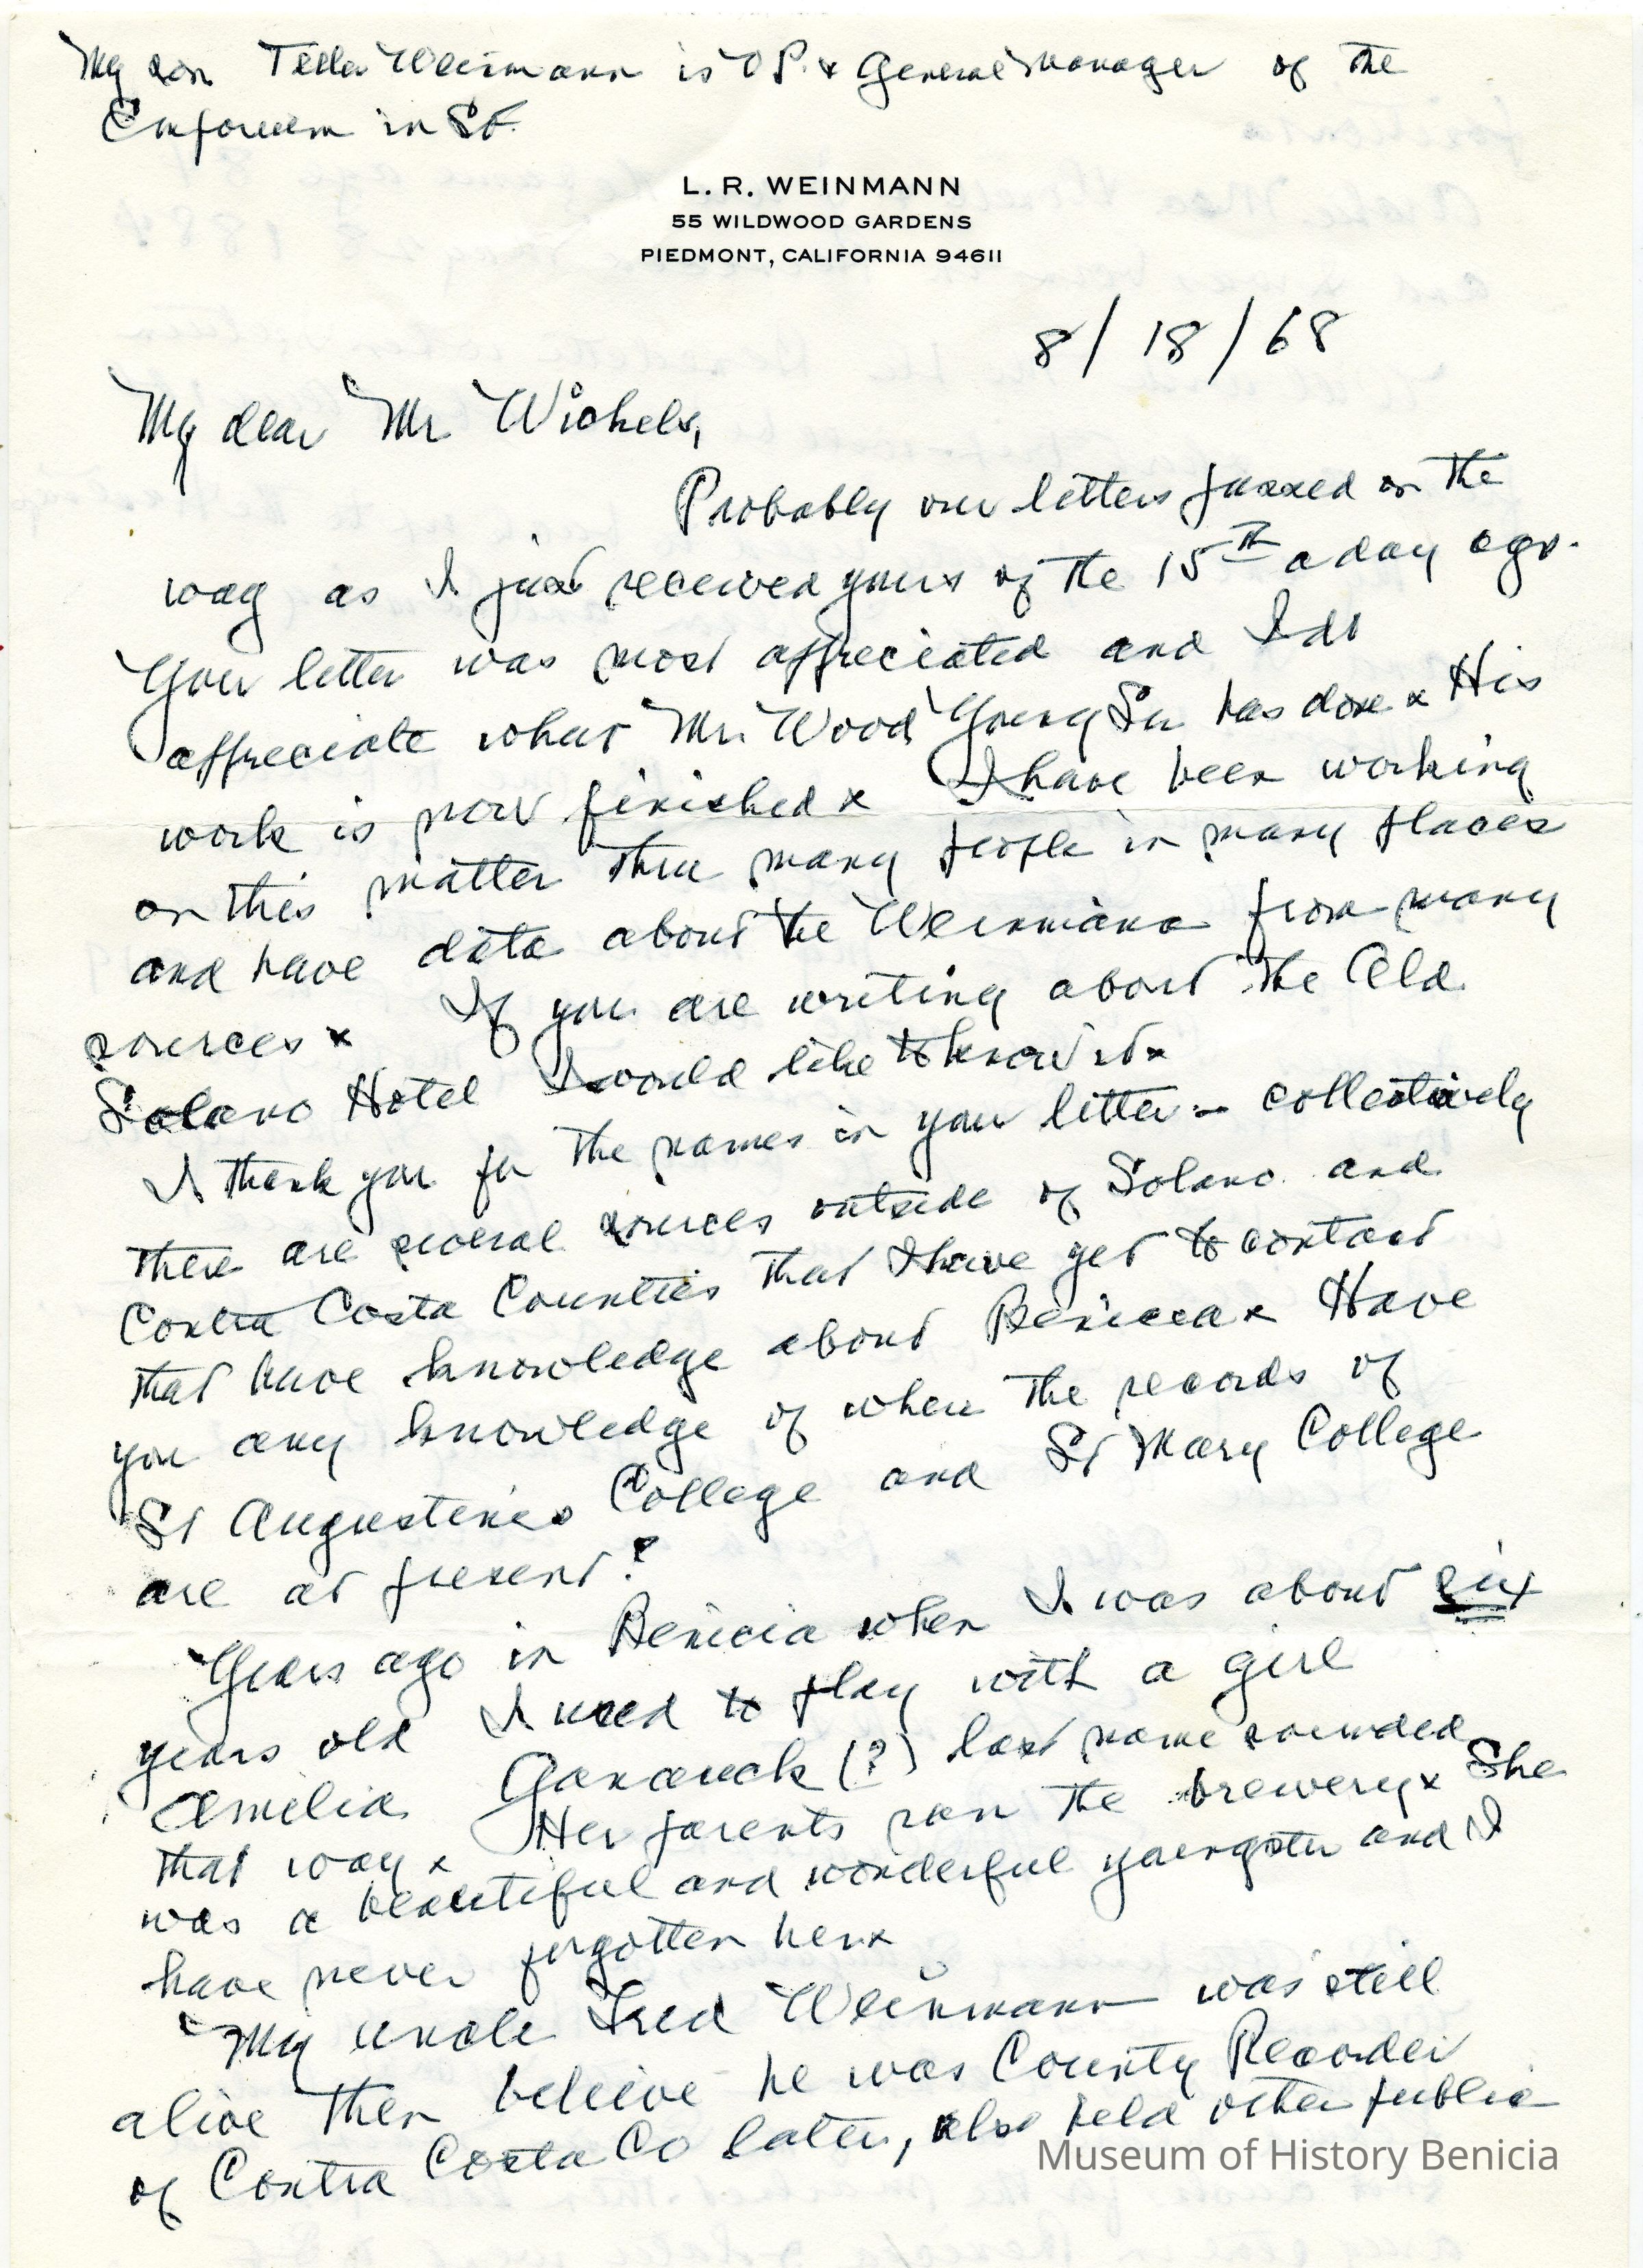 My son Teller Weinmann is V P. & General Manager of the
Emporium in SF.
L. R. WEINMANN
55 WILDWOOD GARDENS
PIEDMONT, CALIFORNIA 94611
8/18/68
My dear Mr Wichels,
Probably our letters passed on the
way as I just received yours of the 15th a day ago.
Your letter was most appreciated and I do
appreciate what Mr. Wood Young Sr has done x His
work is now finished x I have been working
on this matter thru many people in many places
and have data about the Weinmanns from many
sources x If you are writing about the Old
Solano Hotel I would like to know it x
I thank you for the names in your letter - collectively
there are several sources outside of Solano and
Contra Costa Counties that I have yet to contact
that have knowledge about Benicia x Have
you any knowledge of where the records of
St Augustines College and St Mary College
are at present?
Years ago in Benicia when I was about six
years old I used to play with a girl
Amelia Ganauck (?) last name sounded
that way x Her parents ran the brewery x She
was a beautiful and wonderful youngster and I
have never forgotten her x
My uncle Fred Weinmann was still
alive then believe he was County Recorder
of Contra Costa Co later, also held other public
Museum of History Benicia